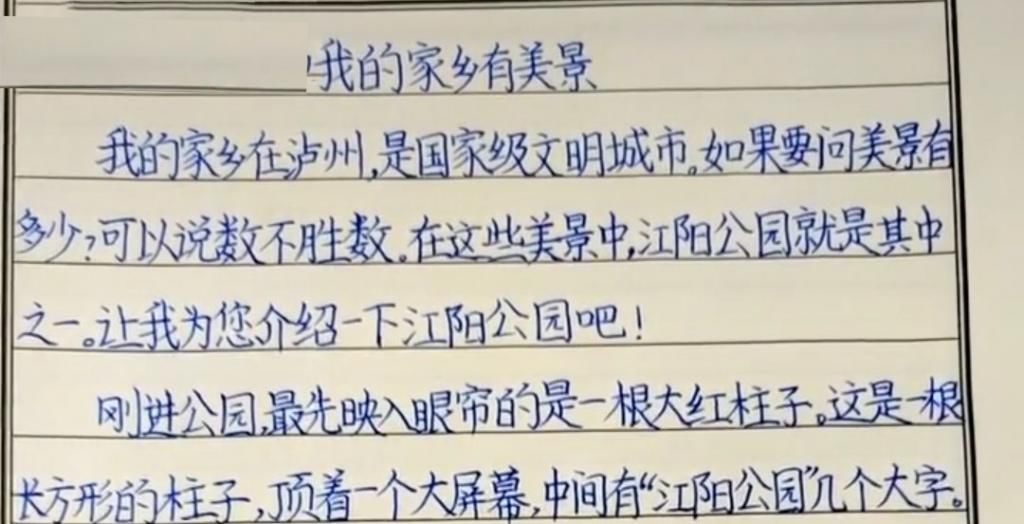 我的家乡有美景
我的家乡在泸州,是国家级文明城市。如果要问美景有
多少?可以说数不胜数。在这些美景中,江阳公园就是其中
之一。让我为您介绍一下江阳公园吧!
刚进公园,最先映入眼帘的是一根大红柱子。这是一根
长方形的柱子,顶着一个大屏幕,中间有“江阳公园”几个大字。